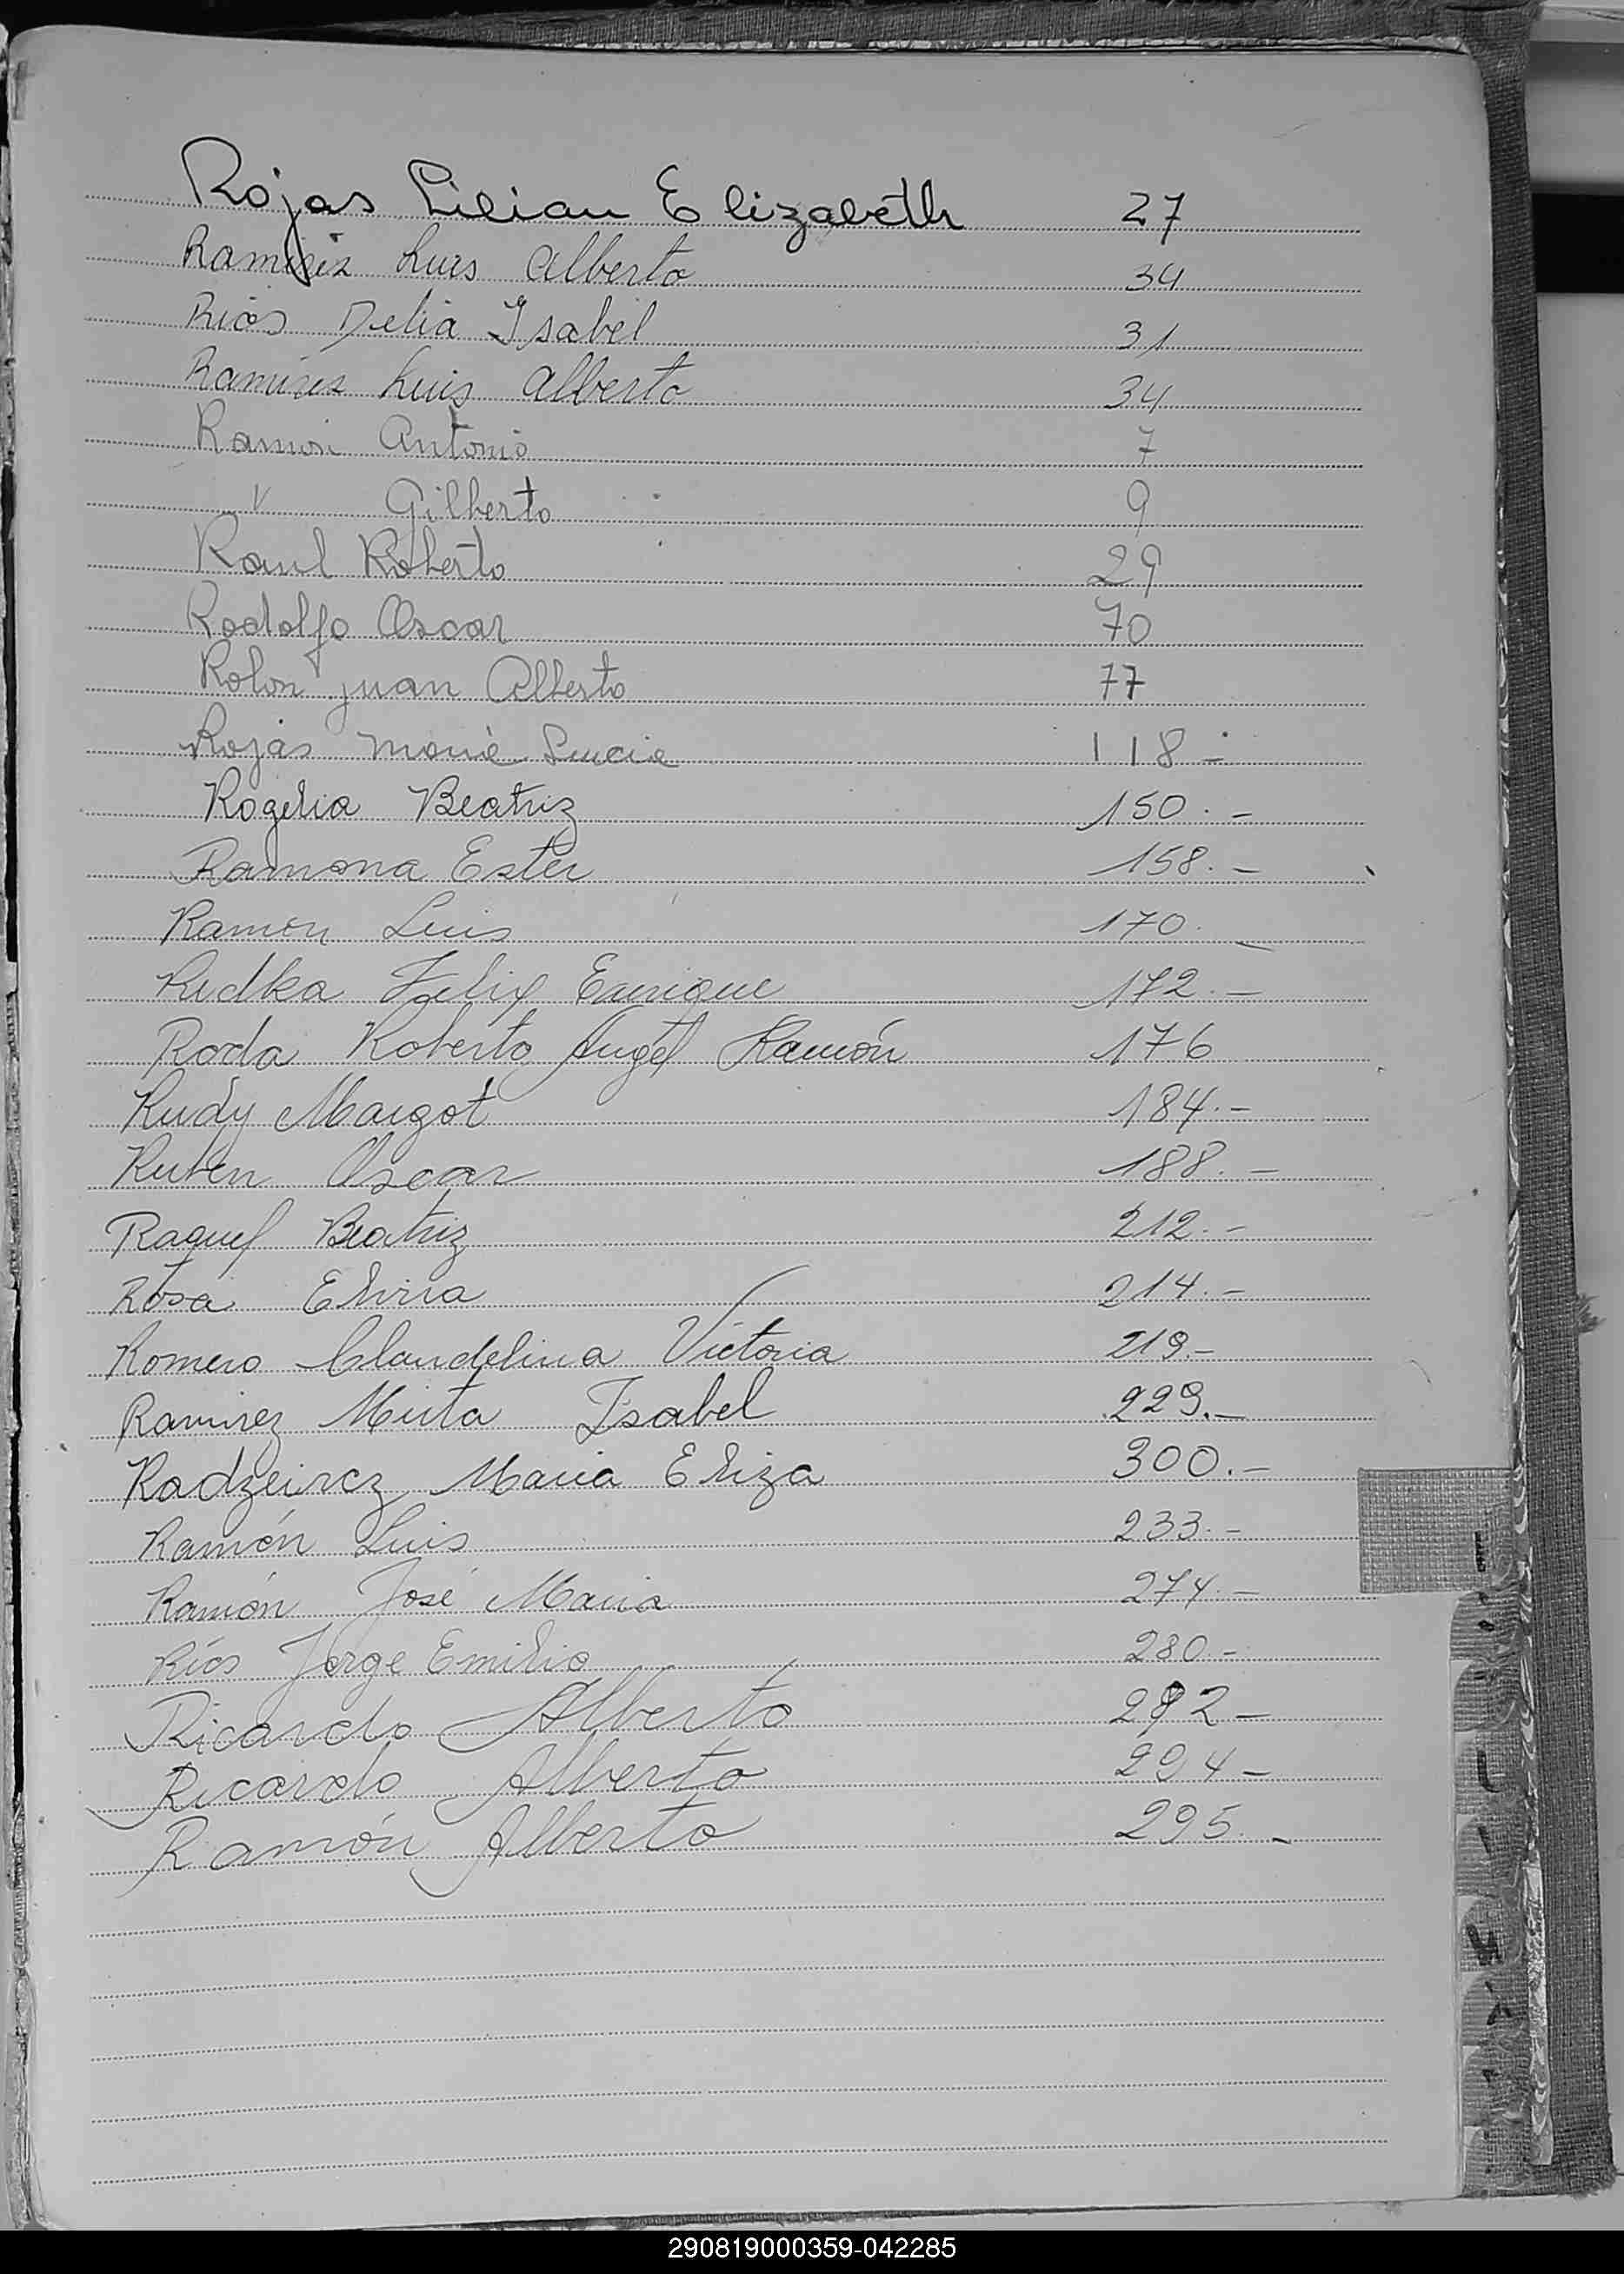 Rojas Lilian Elizabeth 27
Ramirez Luis Alberto 34
Rios Delia Isabel 31
Ramirez Luis Alberto 34
Ramon Antonio 7
" Gilberto 9
Raul Roberto 29
Rodolfo Oscar 70
Rolon Juan Alberto 77
Rojas Maria Lucia 118.-
Rogelia Beatriz 150.-
Ramona Ester 158.-
Ramon Luis 170.-
Redka Felix Enrique 172.-
Roda Roberto Angel Ramón 176
Rudy Margot 184.-
Ruben Oscar 188.-
Raquel Beatriz 212.-
Rosa Elvira 214.-
Romero Claudelina Victoria 219.-
Ramirez Mirta Isabel 229.-
Maria Eliza 300.-
Ramón Luis 233.-
Ramón José Maria 274.-
Ríos Jorge Emilio 280.-
Ricardo Alberto 292-
Ricardo Alberto 294-
Ramón Alberto 295.-
290819000359-042285